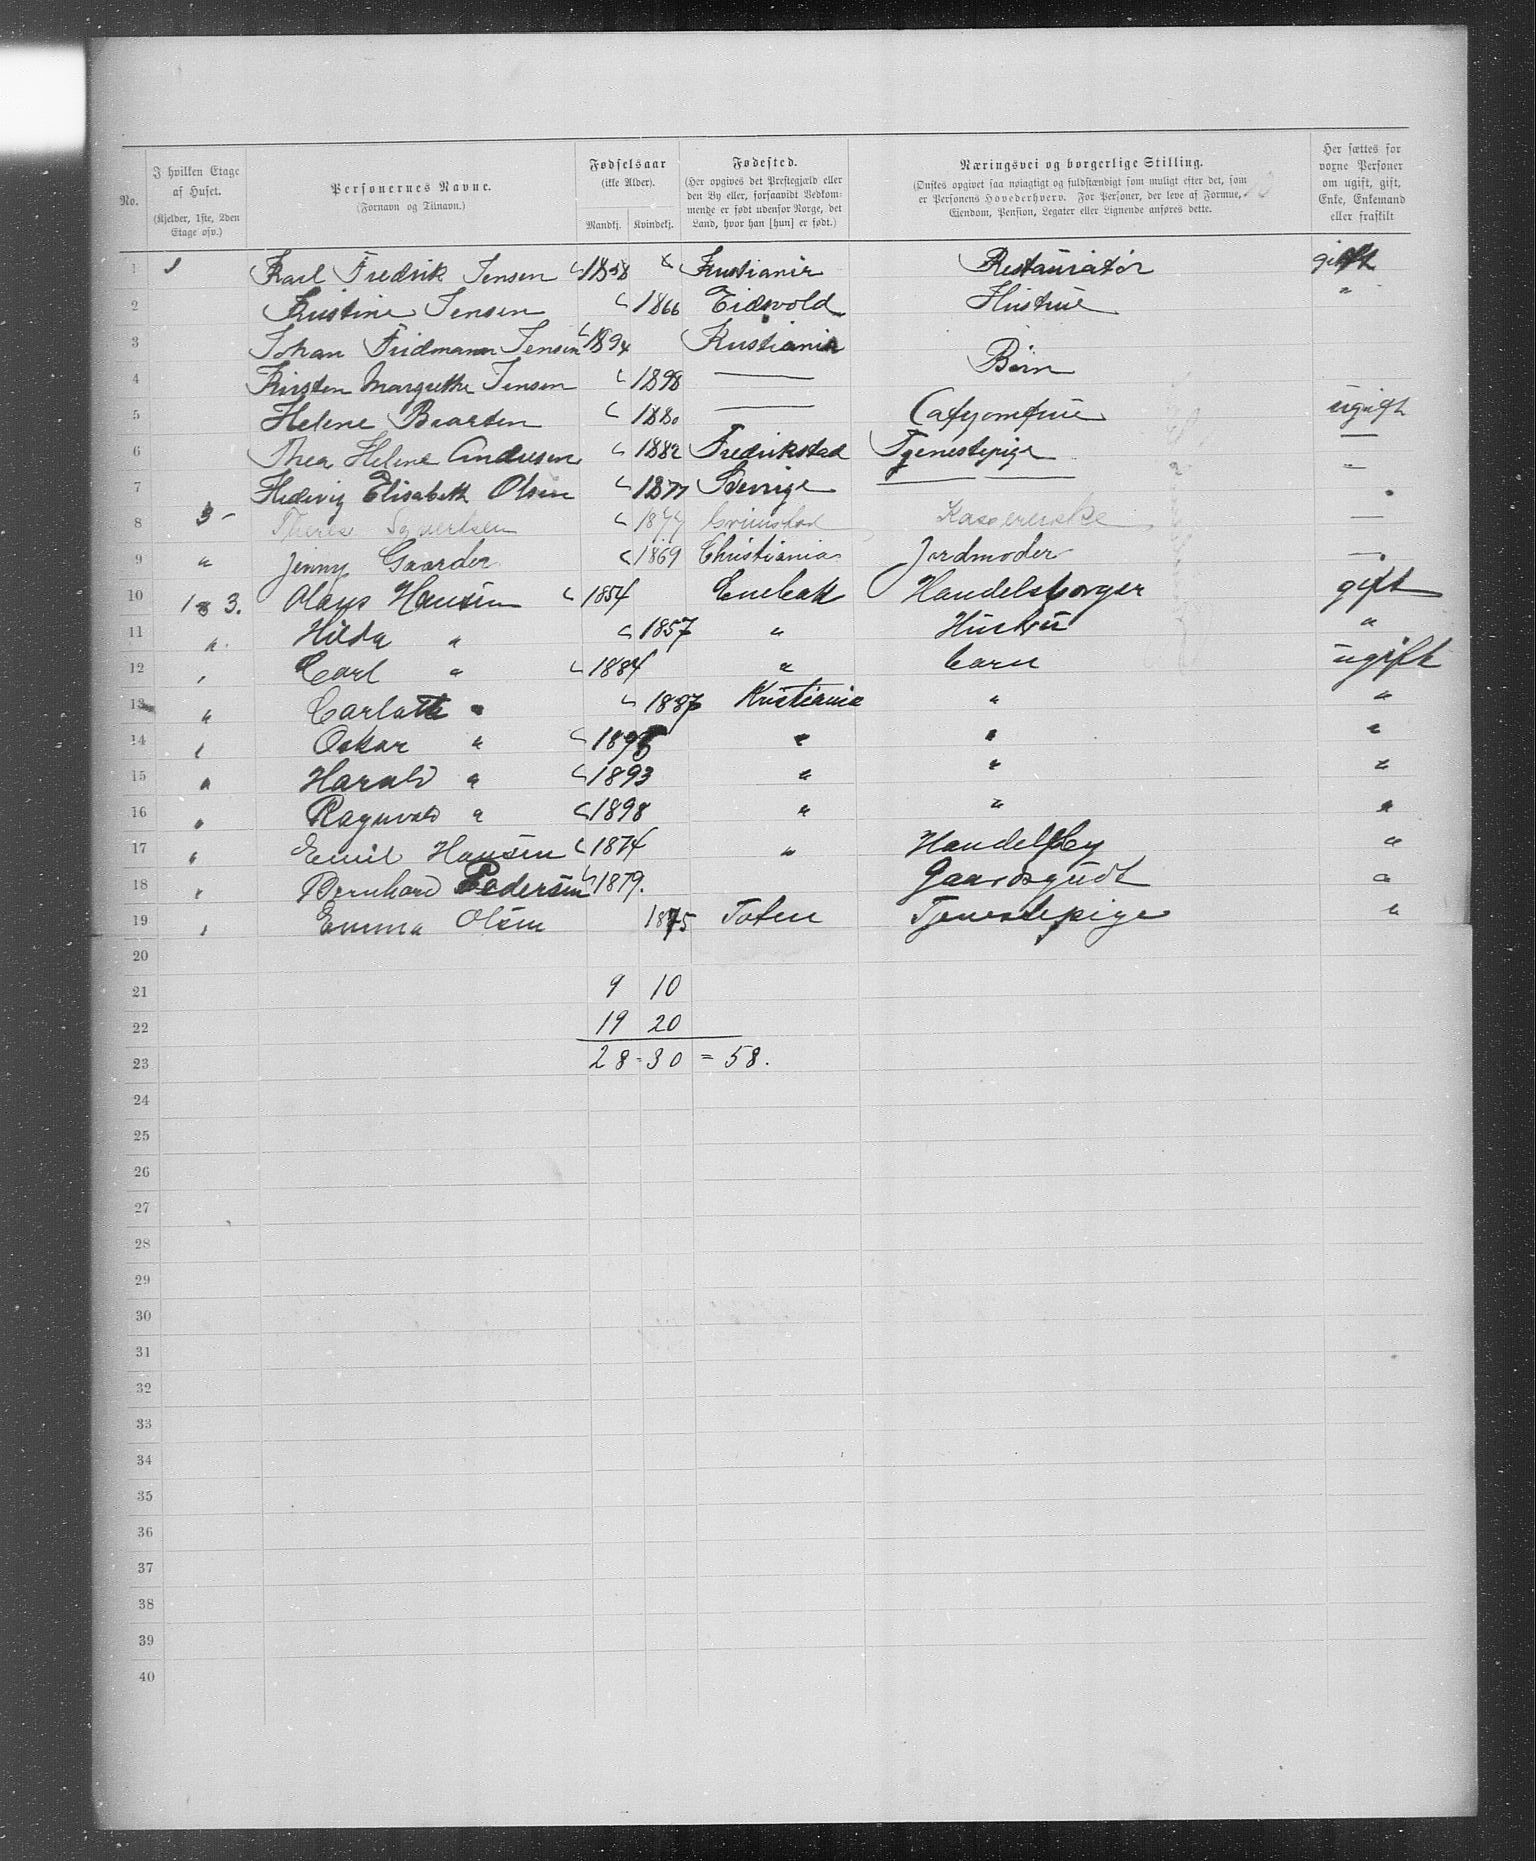 No.
I hvilken Etage af Huset.
(Kjelder, 1ste, 2den Etage osv.)
Personernes Navne.
(Fornavn og Tilnavn.)
Fødselsaar
(ikke Alder).
Mandkj. Kvindekj.
Fødested.
(Her opgives det Prestegjæld eller den By eller, forsaavidt Vedkommende er født udenfor Norge, det Land, hvor han [hun] er født.)
Næringsvei og borgerlige Stilling.
(Ønskes opgivet saa nøiagtigt og fuldstændigt som muligt efter det, som er Personens Hovederhverv. For Personer, der leve af Formue, Eiendom, Pension, Legater eller Lignende anføres dette.
Her sættes for voxne Personer om ugift, gift, Enke, Enkemand eller fraskilt
1 1 Karl Fredrik Jensen 1858 Kristiania Restauratør gift
2 Kristine Jensen 1866 Eidsvold Hustrue "
3 Johan Fridmann Jensen 1894 Kristiania
4 Kirsten Margrethe Jensen 1898 — Børn
5 Helene Braaten 1880 — Cafejomfrue ugift
6 Thea Helene Andresen 1882 Fredrikstad Tjenestepige —
7 Hedevig Elisabeth Olsen 1877 Sverrige — — "
8 3 - 1877 Grimstad Kassererske —
9 " Jenny Gaarder 1869 Christiania Jordmoder —
10 1 3. Olaus Hansen 1854 Enebak Handelsborger gift
11 " Hilda " 1857 " Hustru "
12 " Carl " 1884 " barn ugift
13 " Carlotta " 1887 Kristiania " "
14 " Oskar " " " "
15 " Harald " 1893 " " "
16 " Ragnvald " 1898 " " "
17 " Emil Hansen 1874 " "
18 " Bernhard Pedersen 1879. Gaardsgudt "
19 " Emma Olsen 1875 Toten Tjenestepige "
20
21 9 10
22 19 20
23 28 - 30 = 58.
24
25
26
27
28
29
30
31
32
33
34
35
36
37
38
39
40